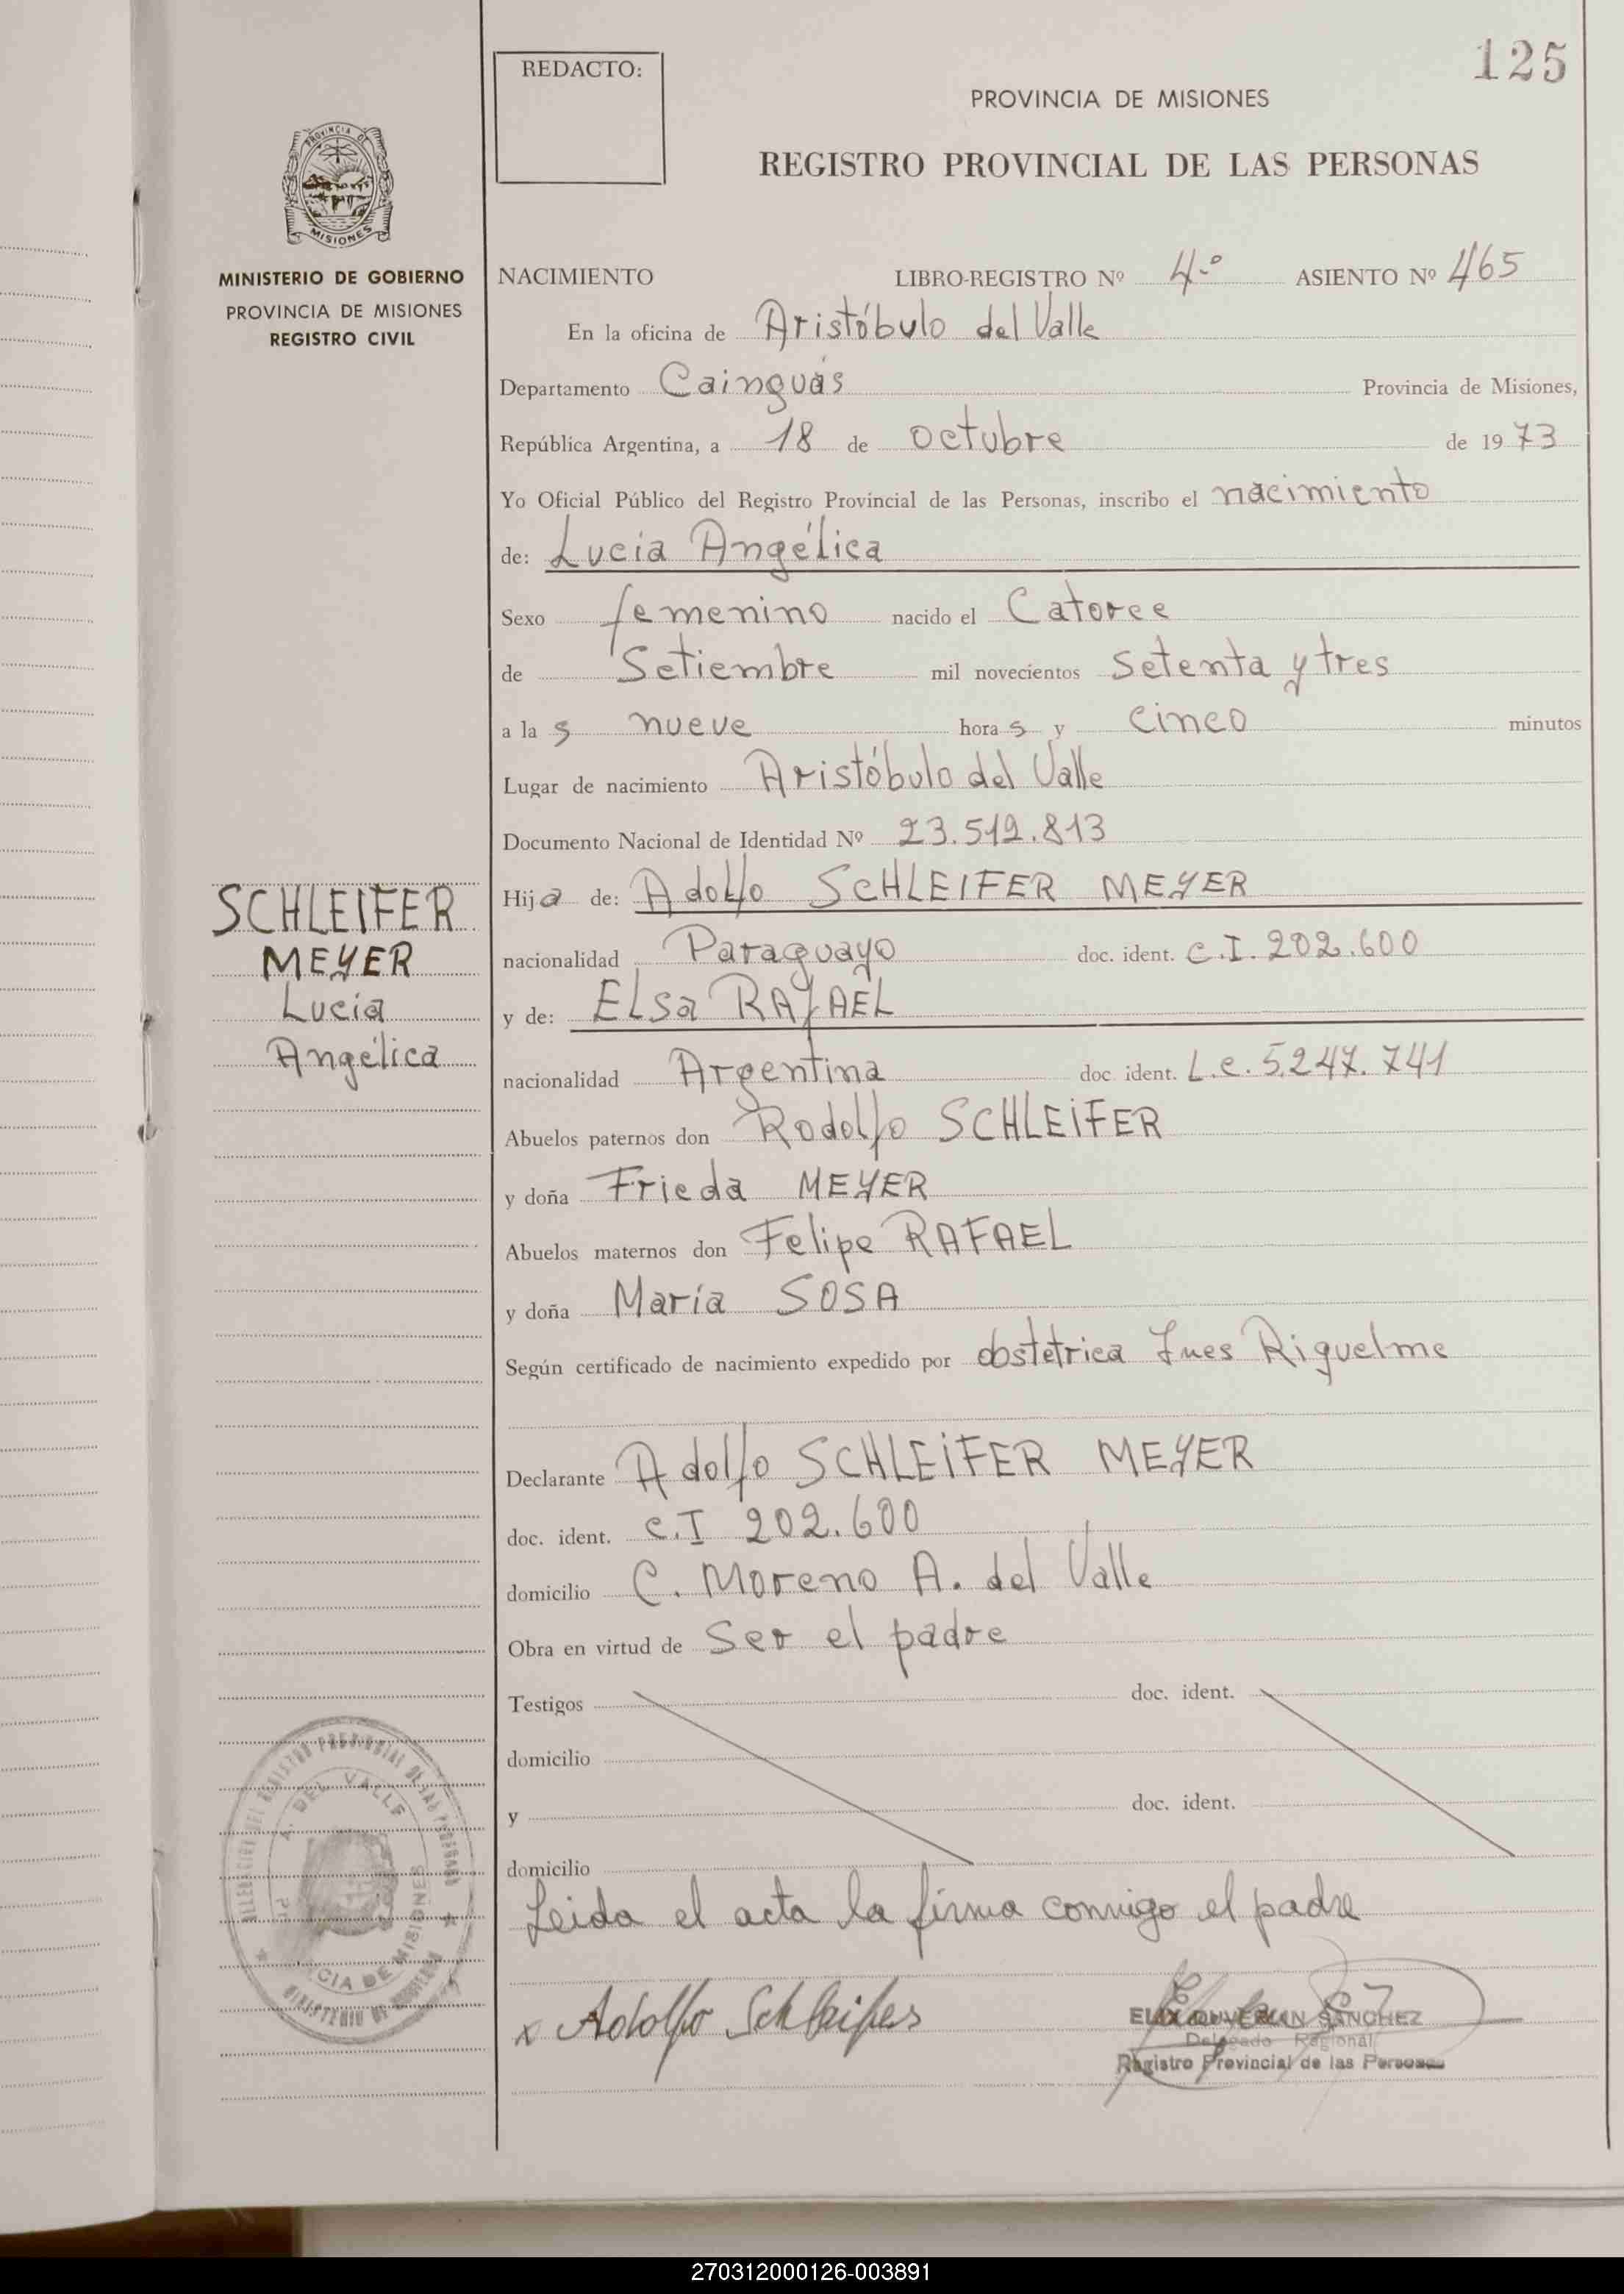 125
REDACTO:
PROVINCIA DE MISIONES
REGISTRO PROVINCIAL DE LAS PERSONAS
PROVINCIA DE
MISIONES
MINISTERIO DE GOBIERNO
PROVINCIA DE MISIONES
REGISTRO CIVIL
NACIMIENTO LIBRO-REGISTRO Nº 4º ASIENTO Nº 465
En la oficina de Aristóbulo del Valle
Departamento Cainguás Provincia de Misiones,
República Argentina, a 18 de octubre de 1973
Yo Oficial Público del Registro Provincial de las Personas, inscribo el nacimiento
de: Lucia Angélica
Sexo femenino nacido el Catorce
de Setiembre mil novecientos setenta y tres
a las nueve horas y cinco minutos
Lugar de nacimiento Aristóbulo del Valle
Documento Nacional de Identidad Nº 23.512.813
Hija de: Adolfo SCHLEIFER MEYER
nacionalidad Paraguayo doc. ident. C.I. 202.600
y de: ELsa RAFAEL
nacionalidad Argentina doc. ident. L.C. 5.247.741
Abuelos paternos don Rodolfo SCHLEIFER
y doña Frieda MEYER
Abuelos maternos don Felipe RAFAEL
y doña María SOSA
Según certificado de nacimiento expedido por obstetrica Ines Riquelme
Declarante Adolfo SCHLEIFER MEYER
doc. ident. C.I 202.600
domicilio C. Moreno A. del Valle
Obra en virtud de Ser el padre
Testigos doc. ident.
domicilio
y doc. ident.
domicilio
Leida el acta la firma conmigo el padre
x Adolfo Schleifer
SANCHEZ
Delegado Regional
Registro Provincial de las Personas
SCHLEIFER
MEYER
Lucia
Angélica
REGISTRO PROVINCIAL DE LAS PERSONAS
A. DEL VALLE
CIA DE MISIONES
MINISTERIO DE GOBIERNO
270312000126-003891